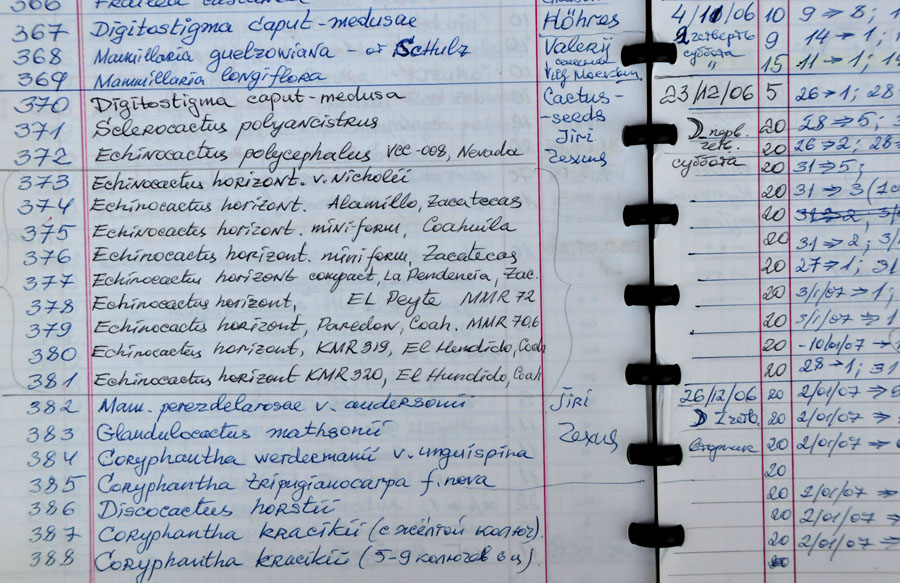 366
367 Digitostigma caput-medusae Höhres 4/11/06 10 9 → 8; 1
368 Mammillaria guelzowiana - от Schulz Valerij четверть 9 14 → 1; 1
369 Mammillaria longiflora суббота 15 11 → 1; 1
370 Digitostigma caput-medusa Cactus- 23/12/06 5 26 → 1; 28
371 Sclerocactus polyancistrus seeds 20 28 → 5; 3
372 Echinocactus polycephalus VCC-008, Nevada Jiri четв. 20 26 → 2; 28
373 Echinocactus horizont. v. Nicholii суббота 20 31 → 5;
374 Echinocactus horizont. Alamillo, Zacatecas 20 31 → 3
375 Echinocactus horizont. miniform, Coahuila 20
376 Echinocactus horizont. miniform, Zacatecas 20 31 → 2; 3/
377 Echinocactus horizont compact, La Pendencia, Zac. 20 27 → 1; 31
378 Echinocactus horizont, El Peyte MMR 72 20 3/1/07 → 1;
379 Echinocactus horizont, Paredon, Coah. MMR 70,6 20 3/1/07 → 1
380 Echinocactus horizont, KMR 319, El Hundido, Coah 20 -10/01/07 → 1
381 Echinocactus horizont KMR 320, El Hundido, Coah 20 28 → 1; 31
382 Mam. perezdelarosae v. andersonii Jiri 26/12/06 20 2/01/07 → 8
383 Glandulocactus mathsonii 20 2/01/07 →
384 Coryphantha werdermanii v. unguispina вторник 20 2/01/07 → 6
385 Coryphantha tripugionocarpa f. nova 20
386 Discocactus horstii 20 2/01/07 →
387 Coryphantha kracikii (с жёлтой колюч) 20 2/01/07 →
388 Coryphantha kracikii (5-9 колючек 20 2/01/07 →